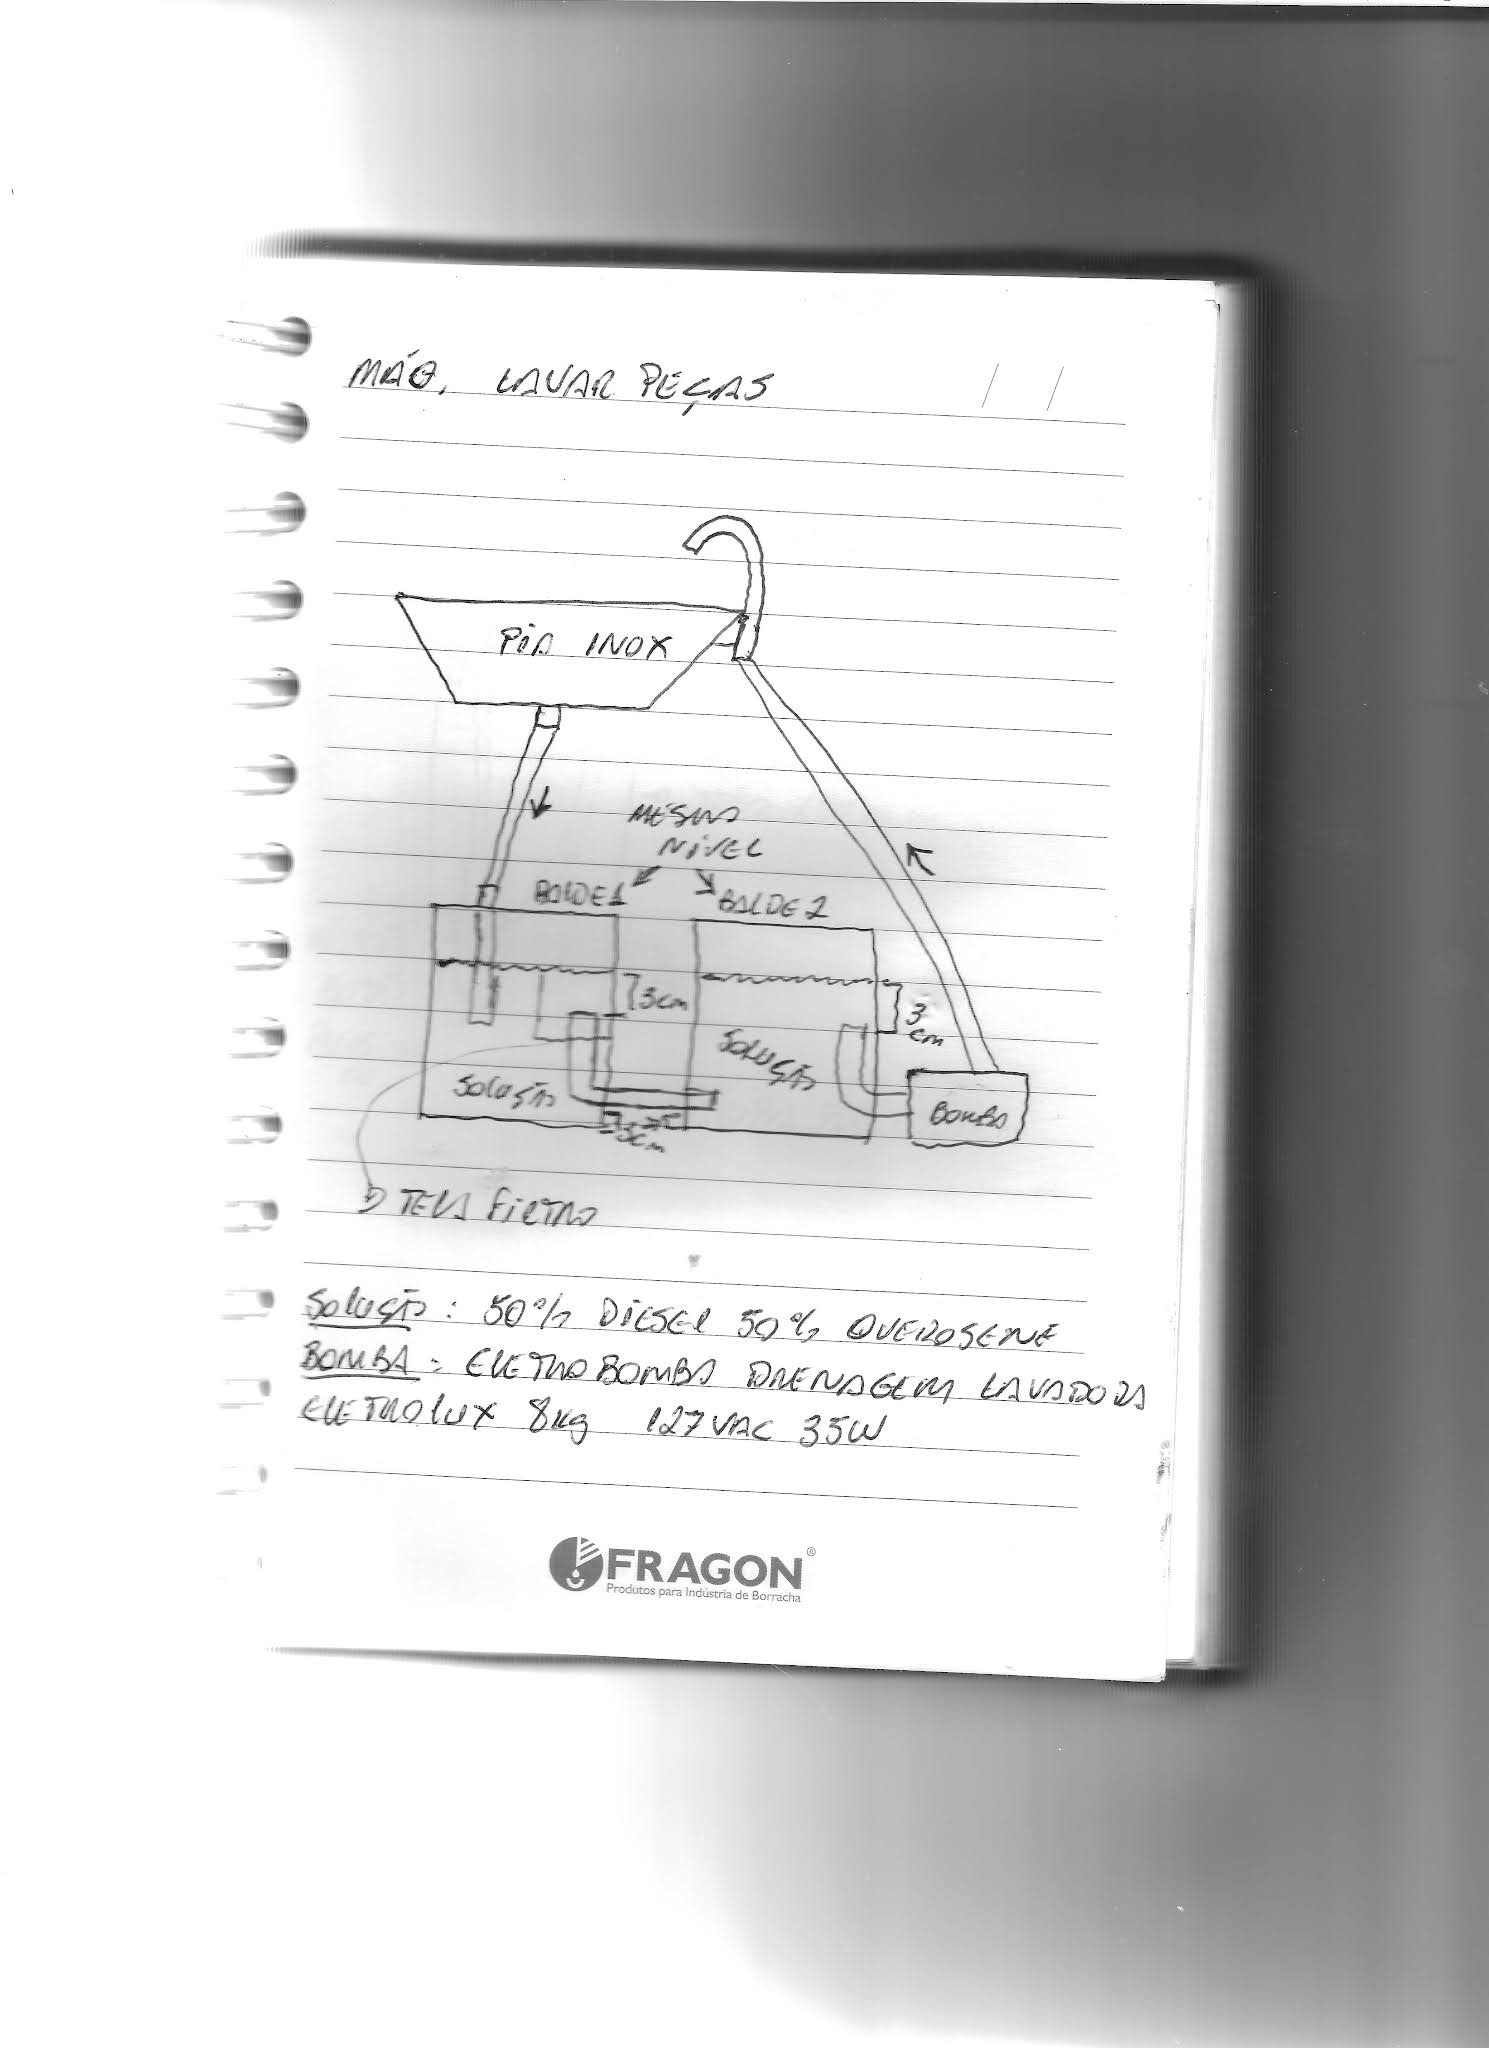 MÁQ. LAVAR PEÇAS / /
PIA INOX
MESMO
NÍVEL
BALDE 1
BALDE 2
3cm
3
cm
SOLUÇÃO
SOLUÇÃO
BOMBA
3cm
TELA FILTRO
SOLUÇÃO: 50% DIESEL 50% QUEROSENE
BOMBA: ELETROBOMBA DRENAGEM LAVADORA
ELETROLUX 8Kg 127VAC 35W
FRAGON®
Produtos para Indústria de Borracha